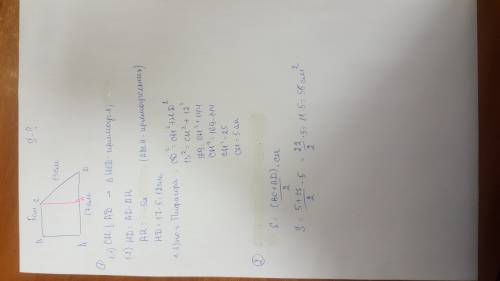 S-?
B 5см C
13см
A H D
17см
① 1.1) CH ⊥ AD → ΔHCD - прямоуг.,
1.2) HD = AD - AH
AH = 5см (ABCH - прямоугольник)
HD = 17 - 5 = 12см
1.3) по т. Пифагора: CD² = CH² + HD²
13² = CH² + 12²
169 = CH² + 144
CH² = 169 - 144
CH² = 25
CH = 5 см
② S = (BC + AD)/2 · CH
S = (5 + 17)/2 · 5 = 22/2 · 5 = 11 · 5 = 55 см²